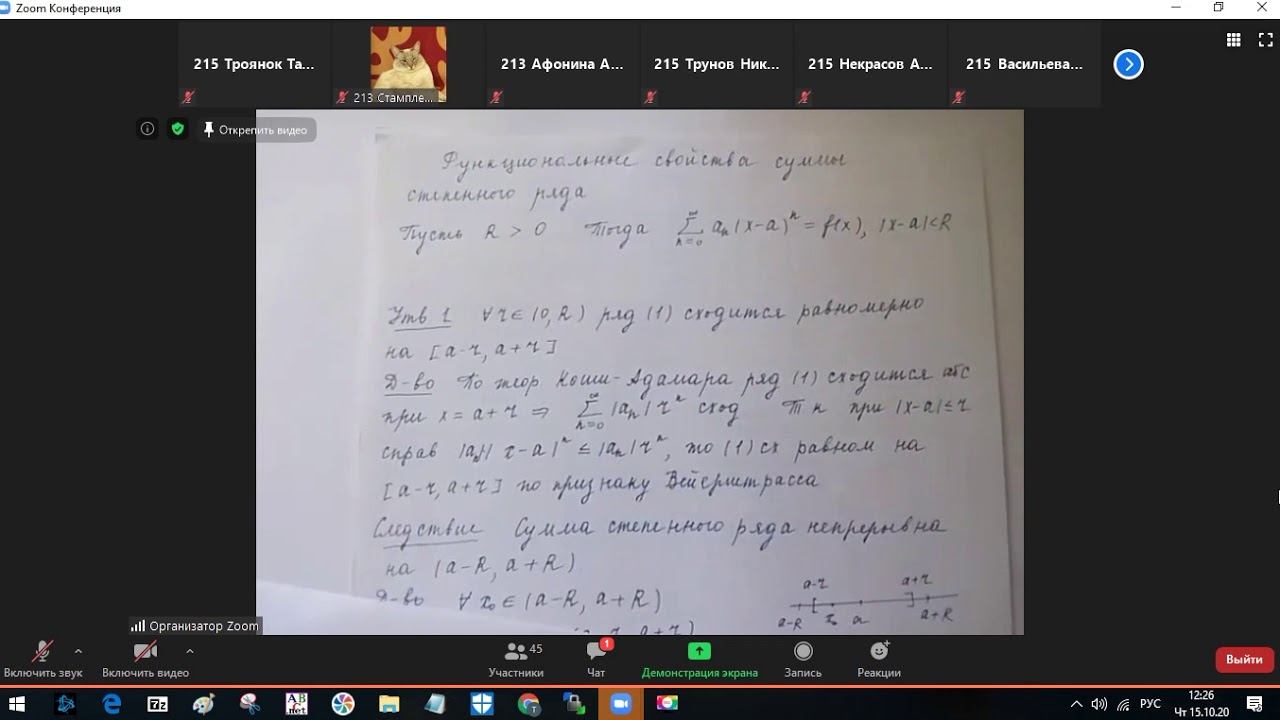 Zoom Конференция
215 Троянок Та...
213 Стампле...
213 Афонина А...
215 Трунов Ник...
215 Некрасов А...
215 Васильева...
Открепить видео
Функциональные свойства суммы
степенного ряда
Пусть R > 0 Тогда ∑_{n=0}^{∞} aₙ(x-a)ⁿ = f(x), |x-a|<R
Утв 1 ∀ r ∈ (0, R) ряд (1) сходится равномерно
на [a-r, a+r]
Д-во По теор Коши-Адамара ряд (1) сходится абс
при x = a+r ⇒ ∑_{n=0}^{∞} |aₙ| rⁿ сход Т к при |x-a| ≤ r
справ |aₙ| |x-a|ⁿ ≤ |aₙ| rⁿ, то (1) сх равном на
[a-r, a+r] по признаку Вейерштрасса
Следствие Сумма степенного ряда непрерывна
на (a-R, a+R)
a-r a+r
Д-во ∀ x₀ ∈ (a-R, a+R)
a-R x₀ a a+R
a-r, a+r)
Организатор Zoom
Включить звук
Включить видео
45
Участники
1
Чат
Демонстрация экрана
Запись
Реакции
Выйти
7z
AB
.net
T
РУС
12:26
Чт 15.10.20